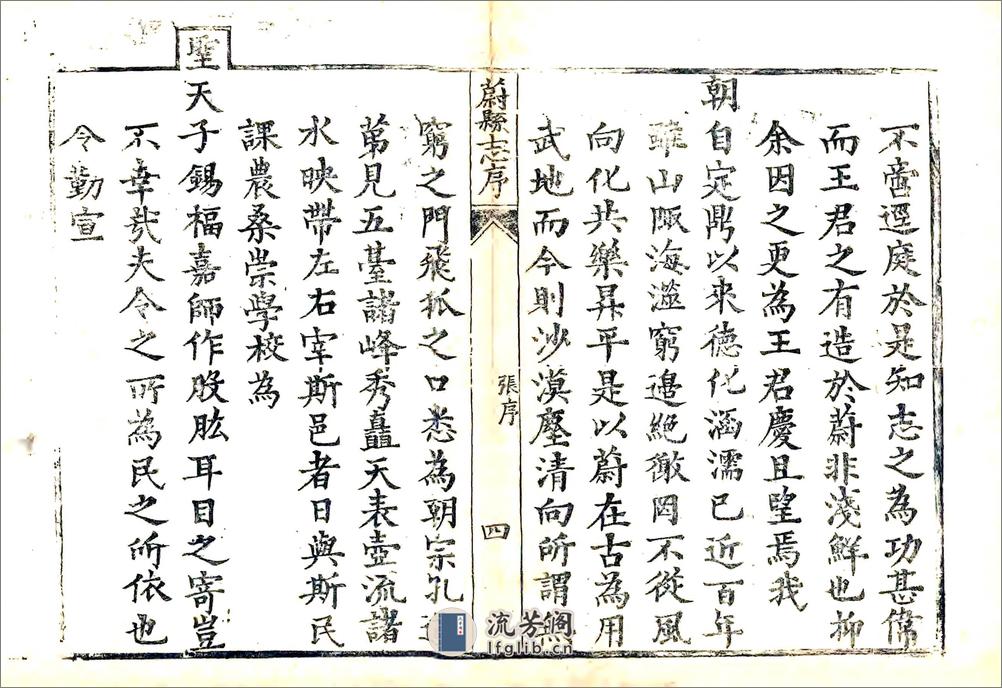 不啻逕庭於是知志之為功甚偉
而王君之有造於蔚非淺鮮也抑
余因之更為王君慶且望焉我
朝自定鼎以來德化涵濡已近百年
雖山陬海澨窮邊絶徼罔不從風
向化共樂昇平是以蔚在古為用
武地而今則沙漠塵清向所謂
蔚縣志序
張序
四
窮之門飛狐之口悉為朝宗孔
第見五臺諸峰秀矗天表壺流諸
水映帶左右宰斯邑者日與斯民
課農桑崇學校為
聖
天子錫福嘉師作股肱耳目之寄豈
不幸㢤夫令之所為民之所依也
令勤宣
流芳閣
lfglib.cn